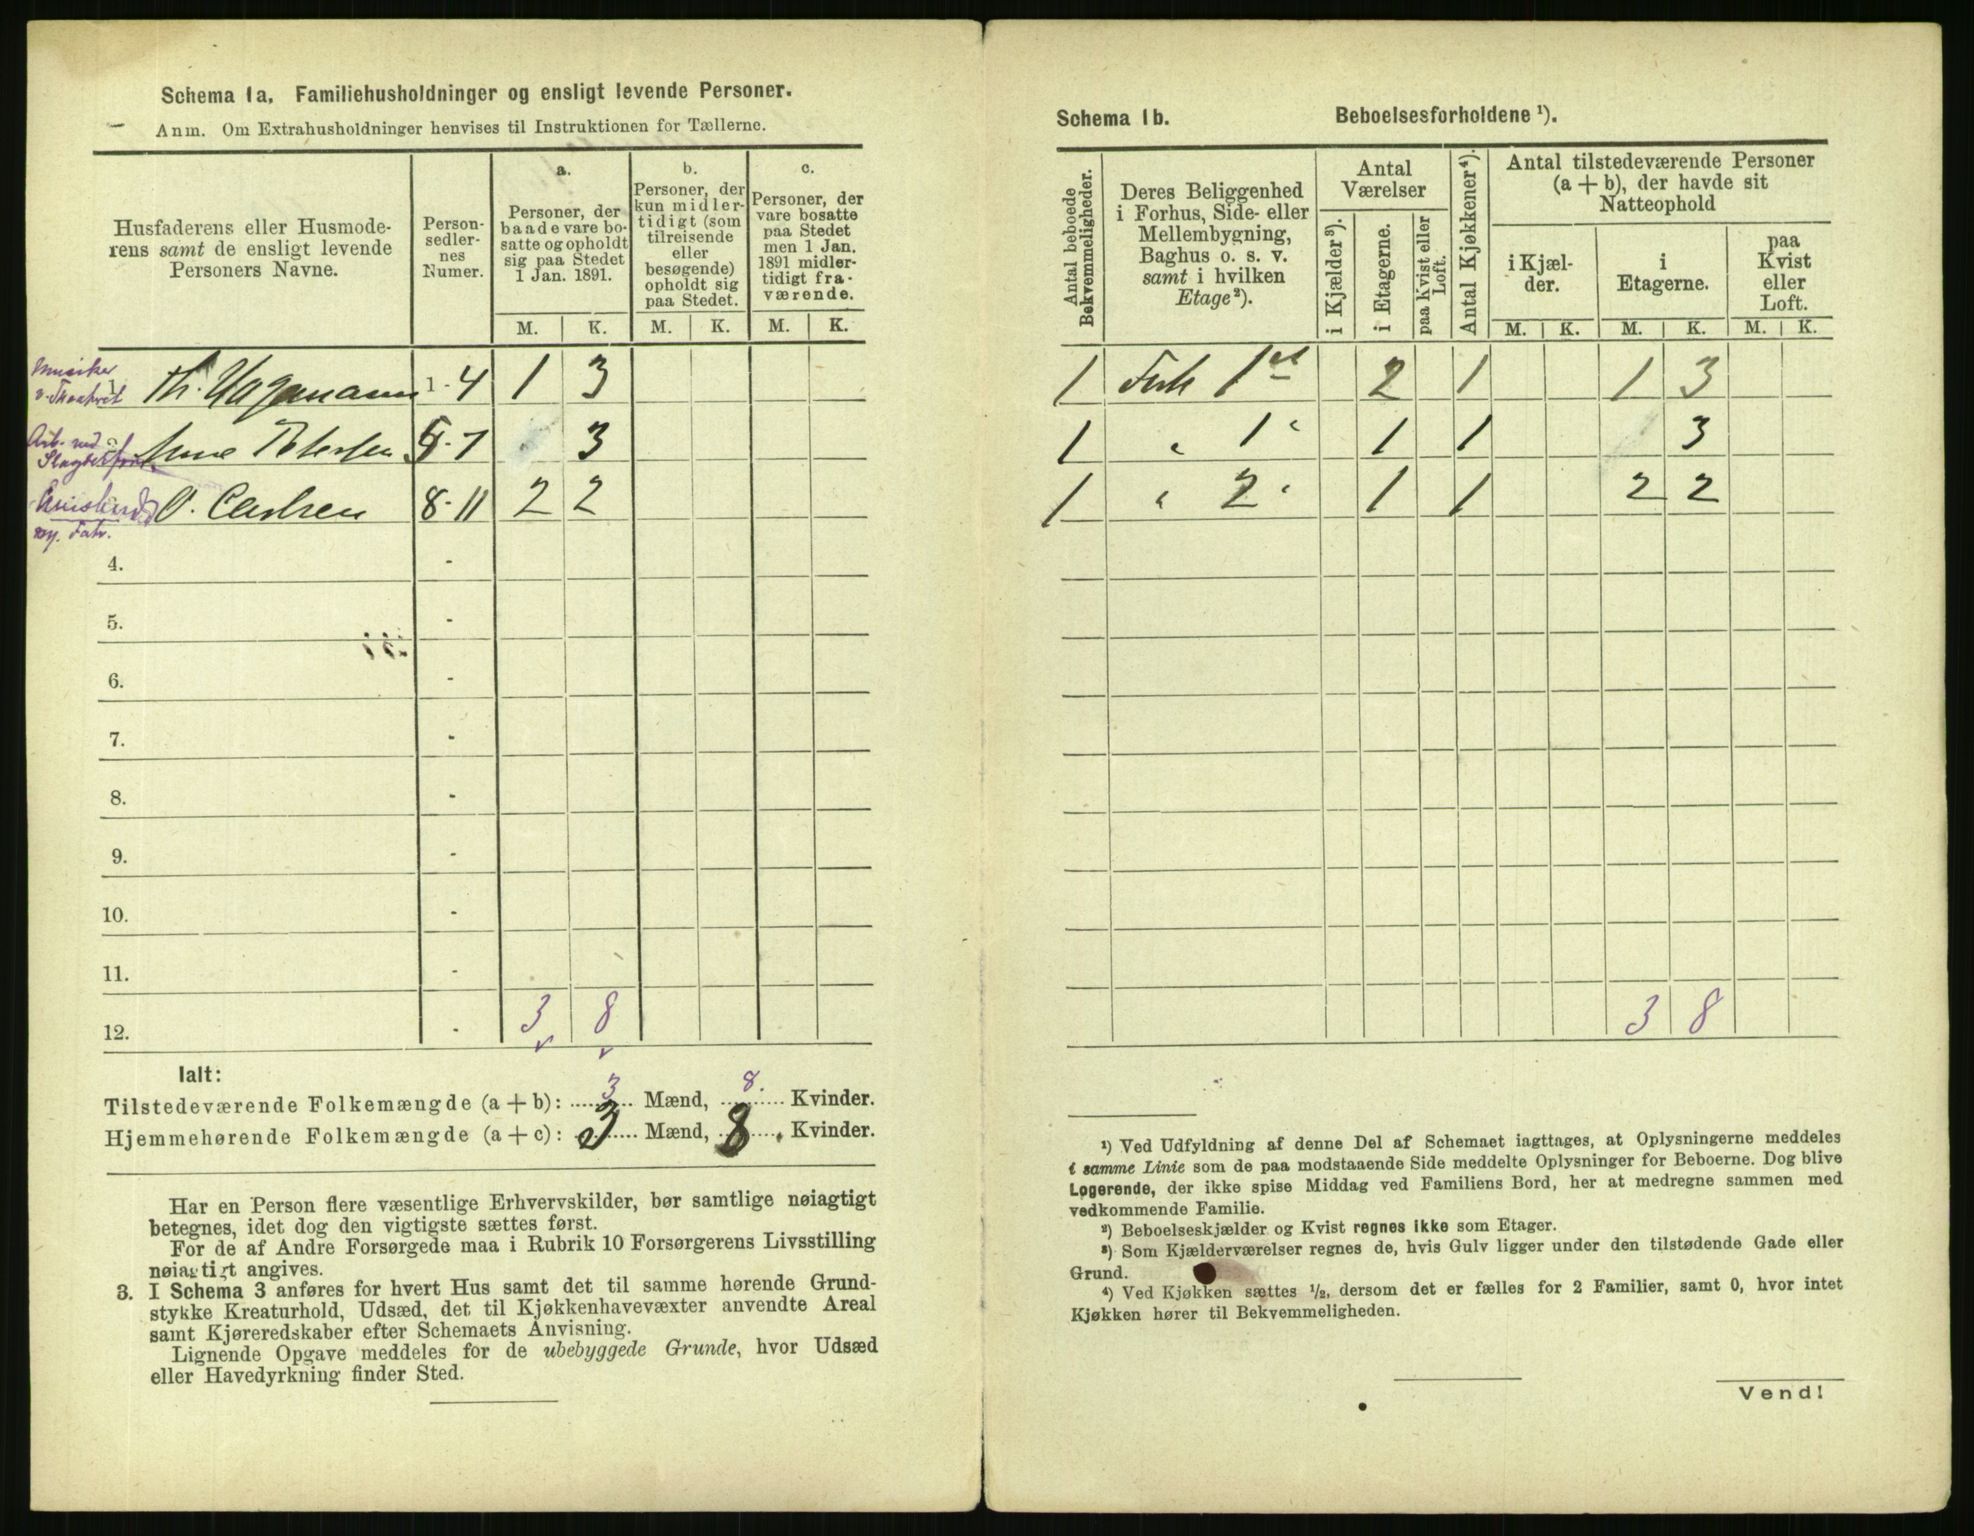 Schema 1a. Familiehusholdninger og ensligt levende Personer.
Anm. Om Extrahusholdninger henvises til Instruktionen for Tællerne.
Husfaderens eller Husmoderens samt de ensligt levende Personers Navne.
Person-
sedler-
nes
Numer.
a.
Personer, der
baade vare bo-
satte og opholdt
sig paa Stedet
1 Jan. 1891.
b.
Personer, der
kun midler-
tidigt (som
tilreisende
eller
besøgende)
opholdt sig
paa Stedet.
c.
Personer, der
vare bosatte
paa Stedet
men 1 Jan.
1891 midler-
tidigt fra-
værende.
M. K. M. K. M. K.
Musiker
Th. Hagemann 1-4 1 3
Arb. ved
Anne Petersen 5-7 3
O. Carlsen 8-11 2 2
4. -
5. -
6. -
7. -
8. -
9. -
10. -
11. -
12. - 3 8
Ialt:
Tilstedeværende Folkemængde (a + b): 3 Mænd, 8. Kvinder.
Hjemmehørende Folkemængde (a + c): 3 Mænd, 8. Kvinder.
Har en Person flere væsentlige Erhvervskilder, bør samtlige nøiagtigt
betegnes, idet dog den vigtigste sættes først.
For de af Andre Forsørgede maa i Rubrik 10 Forsørgerens Livsstilling
nøiagtigt angives.
3. I Schema 3 anføres for hvert Hus samt det til samme hørende Grund-
stykke Kreaturhold, Udsæd, det til Kjøkkenhavevæxter anvendte Areal
samt Kjøreredskaber efter Schemaets Anvisning.
Lignende Opgave meddeles for de ubebyggede Grunde, hvor Udsæd
eller Havedyrkning finder Sted.
Schema 1b. Beboelsesforholdene ¹).
Antal beboede
Bekvemmeligheder.
Deres Beliggenhed
i Forhus, Side- eller
Mellembygning,
Baghus o. s. v.
samt i hvilken
Etage²).
Antal
Værelser
i Kjælder³).
i Etagerne.
paa Kvist eller
Loft.
Antal Kjøkkener⁴).
Antal tilstedeværende Personer
(a + b), der havde sit
Natteophold
i Kjæl-
der.
i
Etagerne.
paa
Kvist
eller
Loft.
M. K. M. K. M. K.
1 1 2 1 1 3
1 " 1 " 1 1 3
1 " 2 " 1 1 2 2
3 8
¹) Ved Udfyldning af denne Del af Schemaet iagttages, at Oplysningerne meddeles
i samme Linie som de paa modstaaende Side meddelte Oplysninger for Beboerne. Dog blive
Logerende, der ikke spise Middag ved Familiens Bord, her at medregne sammen med
vedkommende Familie.
²) Beboelseskjælder og Kvist regnes ikke som Etager.
³) Som Kjælderværelser regnes de, hvis Gulv ligger under den tilstødende Gade eller
Grund.
⁴) Ved Kjøkken sættes ½, dersom det er fælles for 2 Familier, samt 0, hvor intet
Kjøkken hører til Bekvemmeligheden.
Vend!